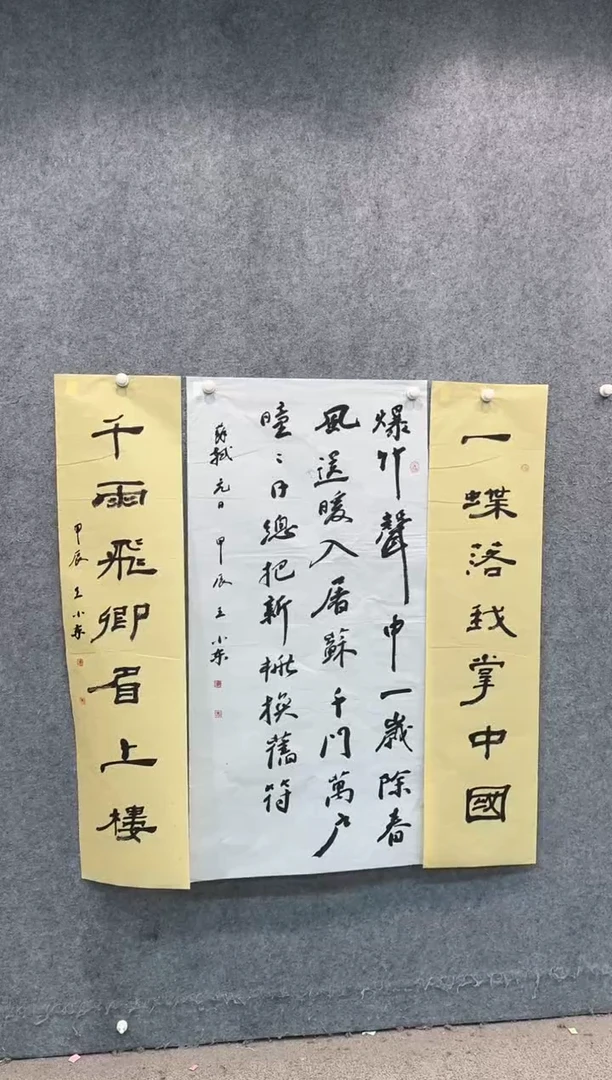 一蝶落我掌中國
爆竹聲中一歲除春
風送暖入屠蘇千門萬户
曈〻日總把新桃換舊符
蘇軾元日 甲辰 王小东
千雨飛卿眉上樓
甲辰 王小东